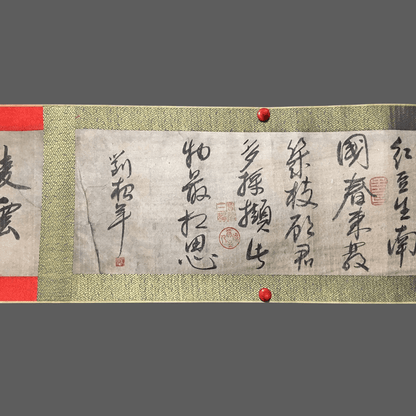 紅豆生南
國春來發
幾枝願君
多採擷此
物最相思
劉松年
雲